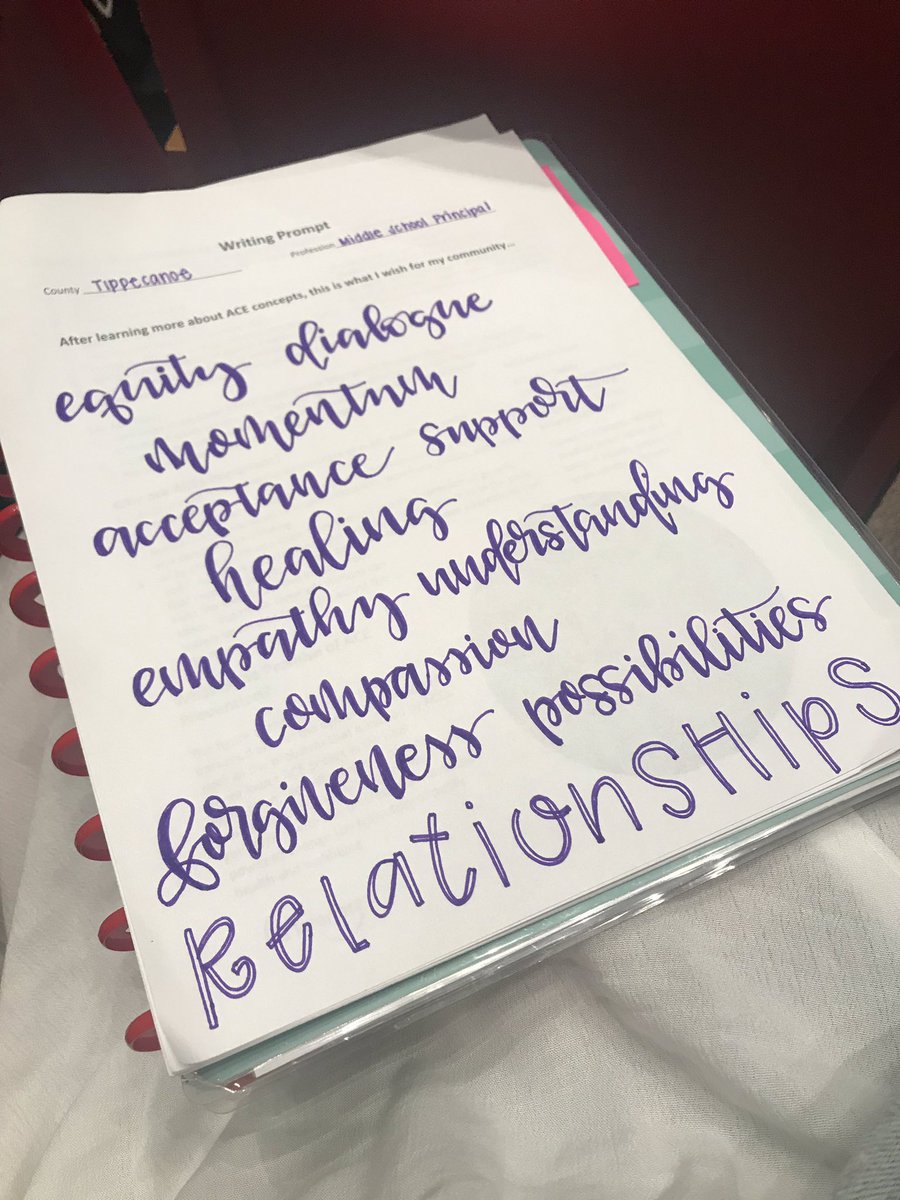 Writing Prompt
County Tippecanoe Profession Middle School Principal
After learning more about ACE concepts, this is what I wish for my community...
equity dialogue
momentum
acceptance support
healing
empathy understanding
compassion
forgiveness possibilities
Relationships